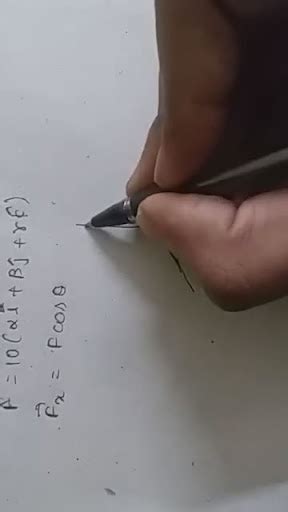 F⃗ = 10(αî + βĵ + γk̂)
F⃗x = Fcosθ